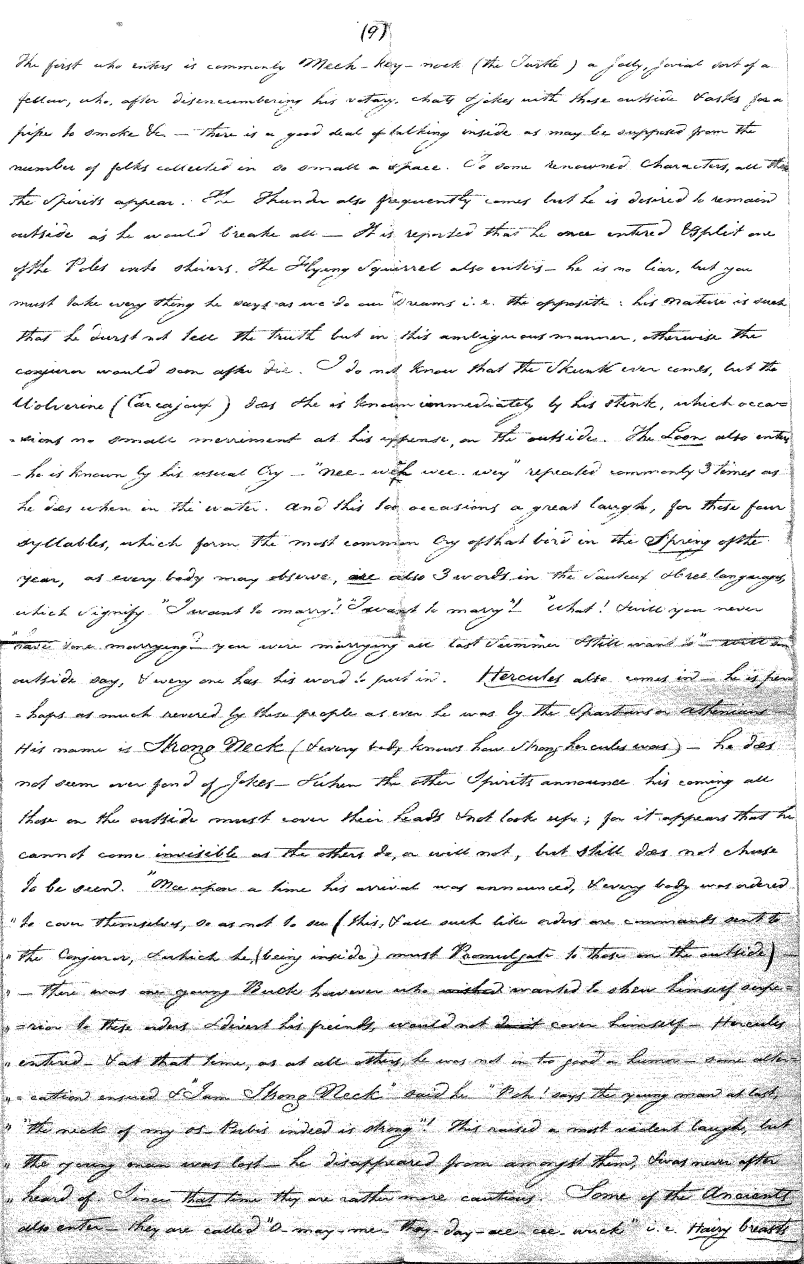 (9)
The first who enters is commonly Mech-key-nock (the Turtle) a jolly, jovial sort of a
fellow, who, after disencumbering his votary, chats & jokes with those outside & asks for a
pipe to smoke &c — there is a good deal of talking inside as may be supposed from the
number of folks collected in so small a space. To some renowned Characters, all
the Spirits appear. The Thunder also frequently comes but he is desired to remain
outside as he would breake all — It is reported that he once entered & split one
of the Poles into shivers. The Flying Squirrel also enters — he is no liar, but you
must take every thing he says as we do our Dreams i.e. the opposite: his nature is such
that he durst not tell the truth but in this ambiguous manner, otherwise the
conjuror would soon after die. I do not know that the Skunk ever comes, but the
Wolverine (Carcajoux) does & he is known immediately by his stink, which occa=
=sions no small merriment at his expense, on the outside. The Loon also enters
— he is known by his usual Cry — "nee-weh wee-wey" repeated commonly 3 times as
he does when in the water. and this too occasions a great laugh, for these four
syllables, which form the most common Cry of that bird in the Spring of the
year, as every body may observe, are also 3 words in the Sauteux & Cree languages,
which signify "I want to marry"! "I want to marry"! "What! & will you never
"have done marrying? you were marrying all last Summer & still want to" —
outside say, & every one has his word to put in. Hercules also comes in — he is per=
=haps as much revered by these people as ever he was by the Spartans or Athenians —
His name is Strong Neck (& every body knows how strong hercules was) — he does
not seem over fond of Jokes — & when the other Spirits announce his coming all
those on the outside must cover their heads & not look up; for it appears that he
cannot come invisible as the others do, or will not, but still does not chuse
to be seen. "Once upon a time his arrival was announced, & every body was ordered
"to cover themselves, so as not to see (this, & all such like orders are commands sent to
"the Conjuror, & which he (being inside) must Promulgate to those on the outside) —
"— there was one young Buck however who wished wanted to shew himself supe=
"=rior to these orders & divert his freinds, would not cover himself — Hercules
"entered — & at that time, as at all others, he was not in too good a humor — some alter=
"=cation ensued & "I am Strong Neck" said he "Poh! says the young man at last,
"the neck of my os-Pubis indeed is strong"! This raised a most violent laugh, but
"the young man was lost — he disappeared from amongst them, & was never after
"heard of. Since that time they are rather more cautious. Some of the Ancients
also enter — they are called "O-may-me-thay-day-ace-cee-wuck" i.e. Hairy breasts